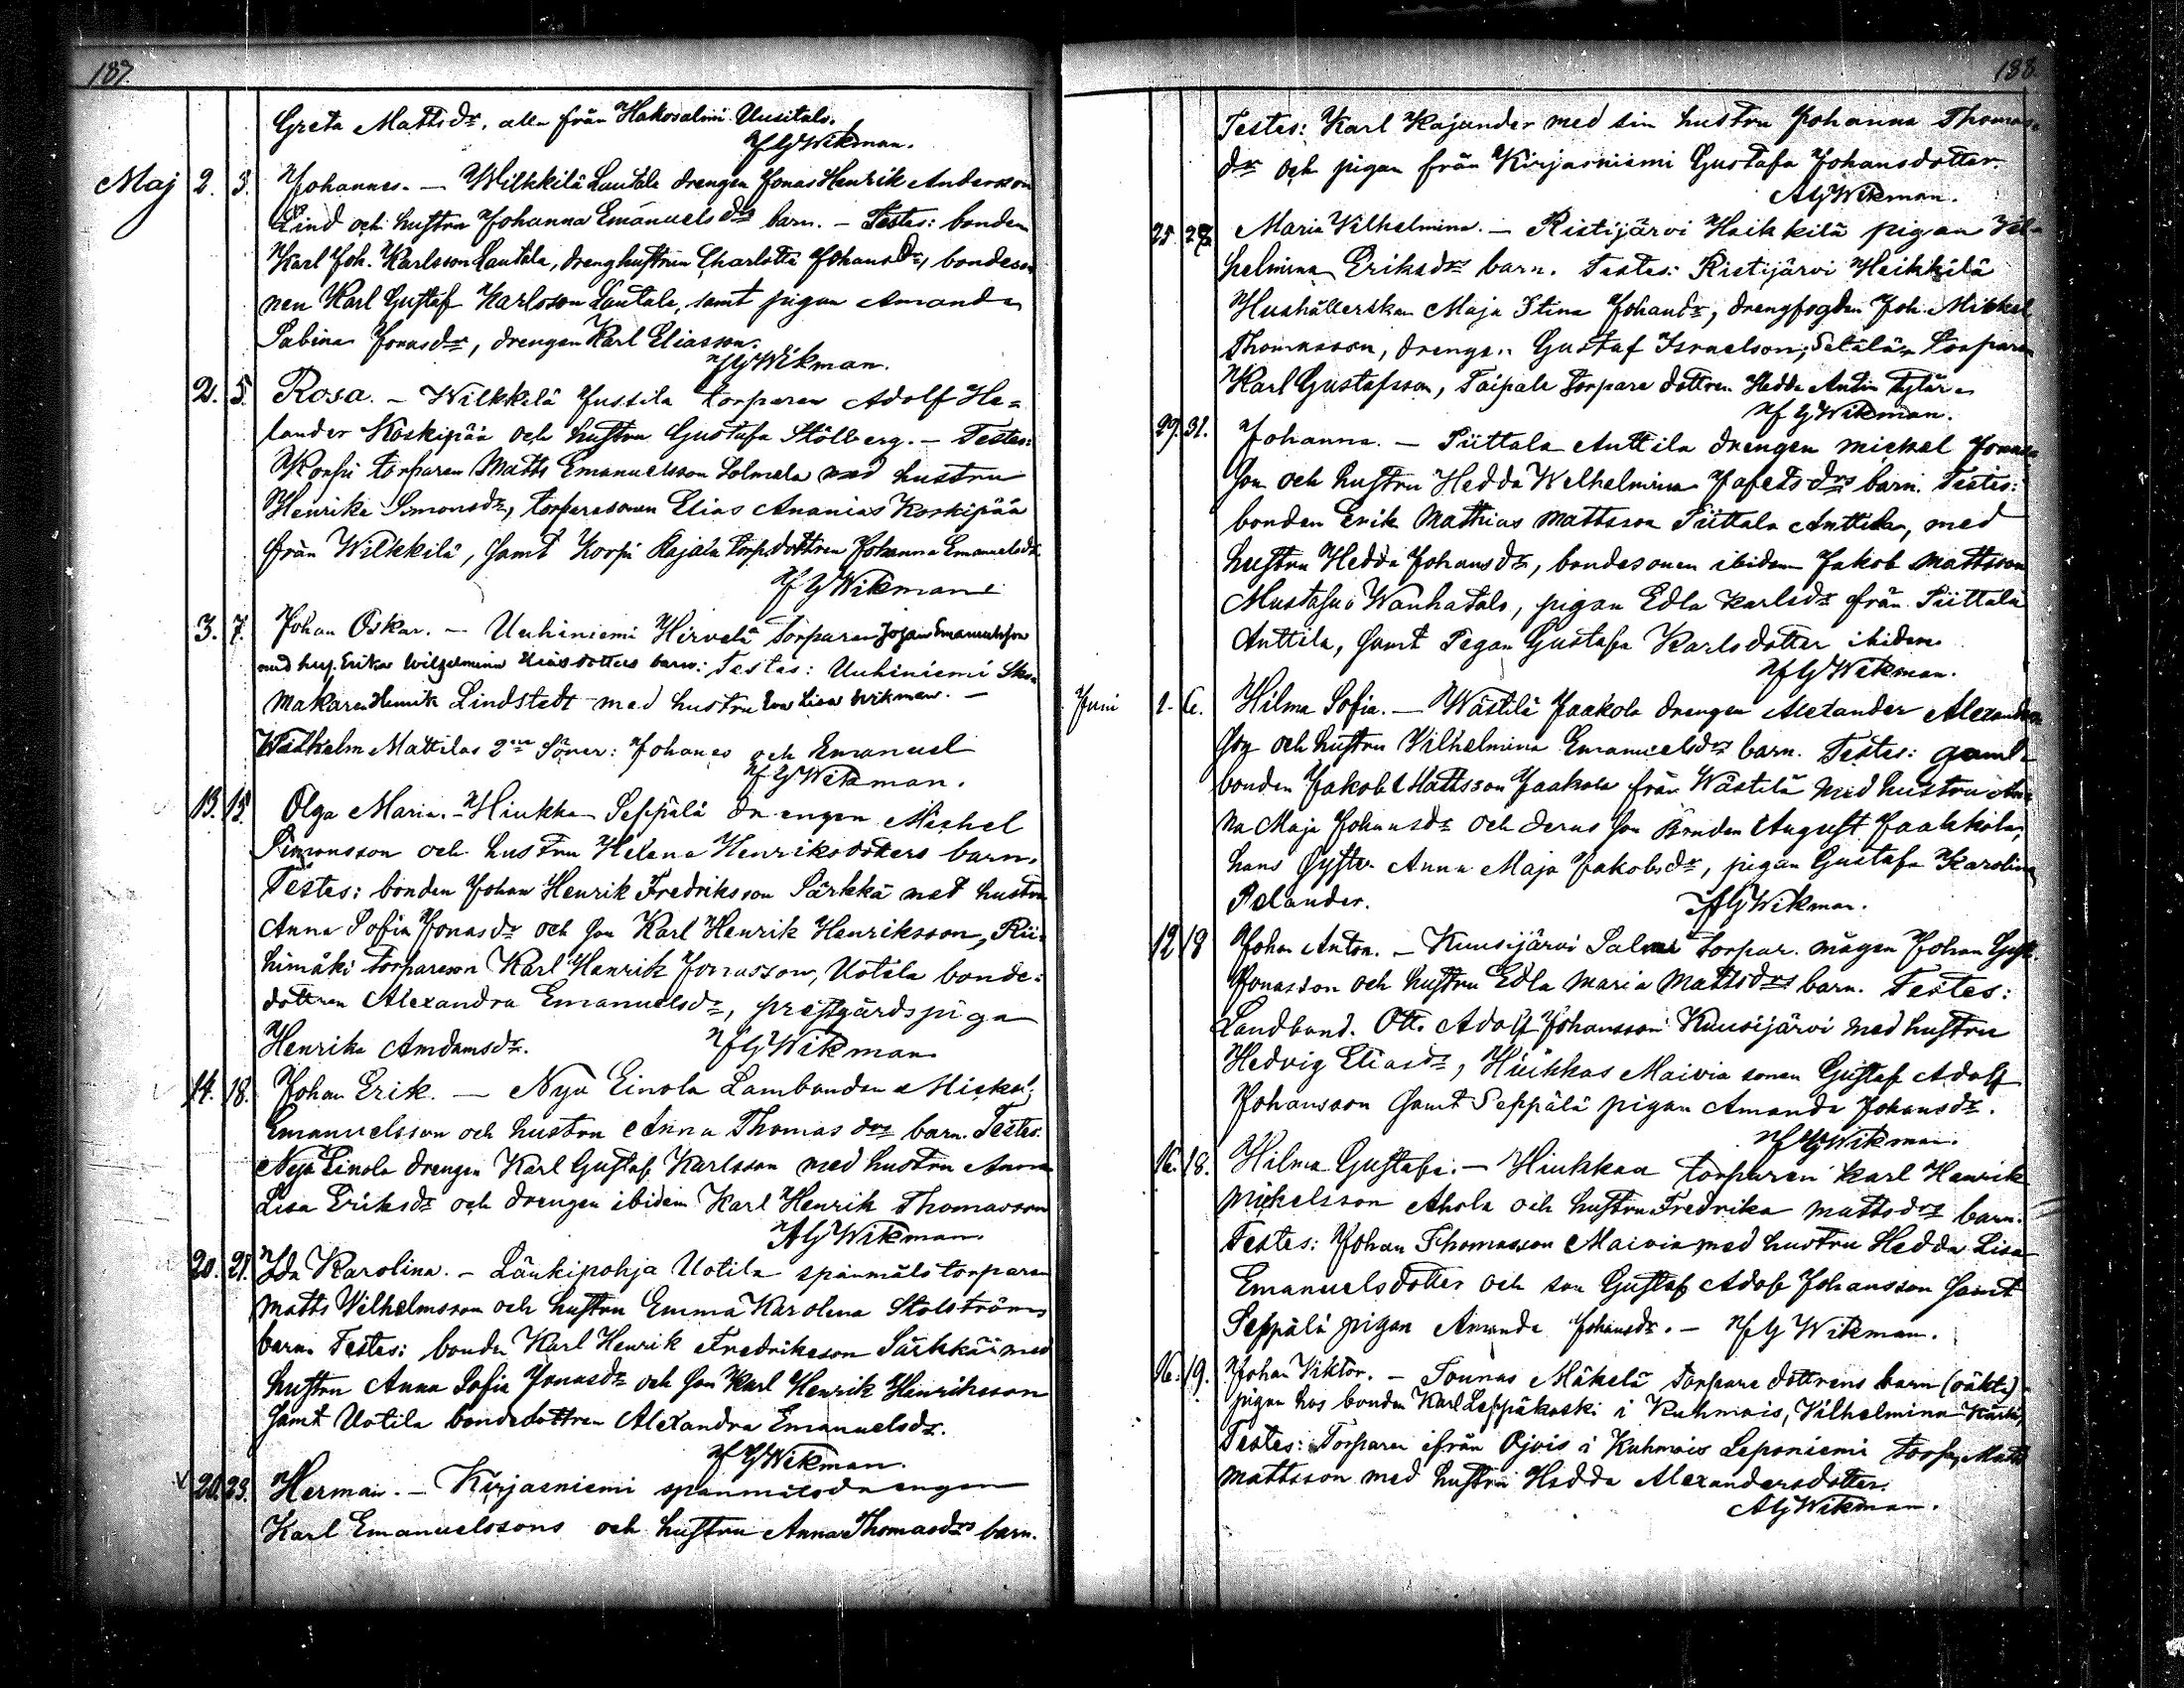 187.
Greta Mattsdr. alla från Hakosalmi Uusitalo.
Wikman.
Maj 2. 3. Johannes. — Wilkkilä Lautala drengen Jonas Henrik Andersson
Lind och hustru Johanna Emanuelsdrs barn. — Testes: bonden
Karl Joh. Karlsson Lautala, dreng hustrun Charlotta Johansdr, bondeso
nen Karl Gustaf Karlsson Lautala, samt pigan Amanda
Sabina Jonasdr, drengen Karl Eliasson.
Wikman.
2. 5. Rosa. — Wilkkilä Jussila torparen Adolf He=
lander Koskipää och hustru Gustafa Stölberg. — Testes:
Korpi torparen Matts Emanuelsson Solmela med hustru
Henrika Simonsdr, torparesonen Elias Ananias Koskipää
från Wilkkilä, samt Korpi Rajala torp.dottren Johanna Emanuelsdr.
Wikman
3. 7. Johan Oskar. — Unhiniemi Hirvelä torparen Johan Emanuelsson
med hus. Erika Wilhelmina Eliasdotters barn: Testes: Unhiniemi Sko-
makaren Henrik Lindstedt med hustru Eva Lisa Wikman. —
Wilhelm Mattilas 2ne Söner: Johannes och Emanuel
Wikman.
13. 15. Olga Maria. — Hiukka Seppälä drengen Michel
Simonsson och hustru Helena Henriksdotters barn.
Testes: bonden Johan Henrik Fredriksson Särkkä med hustru
Anna Sofia Jonasdr och son Karl Henrik Henriksson, Rii-
himäki torpareson Karl Henrik Jonasson, Uotila bonde-
dottren Alexandra Emanuelsdr, prestgårdspiga
Henrika Amdamsdr. Wikman
14. 18. Johan Erik. — Nya Einola Lambonden Mickel
Emanuelsson och hustru Anna Thomasdrs barn. Testes:
Nya Einola drengen Karl Gustaf Karlsson med hustru Anna
Lisa Eriksdr och drengen ibidem Karl Henrik Thomasson
Wikman.
20. 21. Ida Karolina. — Länkipohja Uotila spanmålstorparen
Matts Vilhelmsson och hustru Emma Karolina Stolströms
barn. Testes: bonden Karl Henrik Fredriksson Särkkä med
hustru Anna Sofia Jonasdr och son Karl Henrik Henriksson
samt Uotila bondedottren Alexandra Emanuelsdr.
Wikman.
20. 23. Herman. — Kirjasniemi spanmålsdrengen
Karl Emanuelssons och hustru Anna Thomasdrs barn.
188.
Testes: Karl Kajander med sin hustru Johanna Thomas-
dr och pigan från Kirjasniemi Gustafa Johansdotter.
Wikman.
25. 27. Maria Vilhelmina. — Ristijärvi Heikkilä pigan Vil-
helmina Eriksdrs barn. Testes: Ristijärvi Heikkilä
Hushållerskan Maja Stina Johansdr, drengfogden Joh. Mikkel
Thomasson, drengen Gustaf Israelson, Setälä Torparen
Karl Gustafsson, Taipale torpare dottren Hedda
Wikman.
29. 31. Johanna. — Püttala Anttila drengen Mickel Jonas-
son och hustru Hedda Welhelmina Jafetsdrs barn. Testes:
bonden Erik Mathias Mattsson Püttala Anttila, med
hustru Hedda Johansdr, bondesonen ibidem Jakob Mattsson
Mustasuo Wanhatalo, pigan Edla Karlsdr från Püttala
Anttila, samt Pigan Gustafa Karlsdotter ibidem
Wikman.
Juni 1. 6. Hilma Sofia. — Wästilä Jaakola drengen Alexander Alexanders-
son och hustru Vilhelmina Emanuelsdrs barn. Testes: gaml-
bonden Jakob Mattsson Jaakola från Wästilä med hustru An-
na Maja Johansdr och deras son Bonden August Jaakkola,
hans Syster Anna Maja Jakobsdr, pigan Gustafa Karolina
Pelander. Wikman.
12 18 Johan Anton. — Kuusijärvi Salmi torpar. mågen Johan Gust.
Jonasson och hustru Edla Maria Mattsdrs barn. Testes:
Landbond. Otto Adolf Johansson Kuusijärvi med hustru
Hedvig Eliasdr, Hiukkas Maivia sonen Gustaf Adolf
Johansson samt Seppälä pigan Amanda Johansdr.
Wikman.
16. 18. Hilma Gustafa. — Hiukkaa torparen Karl Henrik
Michelsson Ahola och hustru Fredrika Mattsdrs barn.
Testes: Johan Thomasson Maivia med hustru Hedda Lisa
Emanuelsdotter och son Gustaf Adolf Johansson samt
Seppälä pigan Amanda Johansdr. — Wikman.
16. 19. Johan Viktor. — Tounas Mäkelä torpare dottrens barn (oäkta)
pigan hos bonden Karl Leppäkoski i Kuhmois, Vilhelmina
Testes: Torparen ifrån Ojois i Kuhmois Leponiemi torp. Matts
Mattsson med hustru Hedda Alexandersdotter.
Wikman.